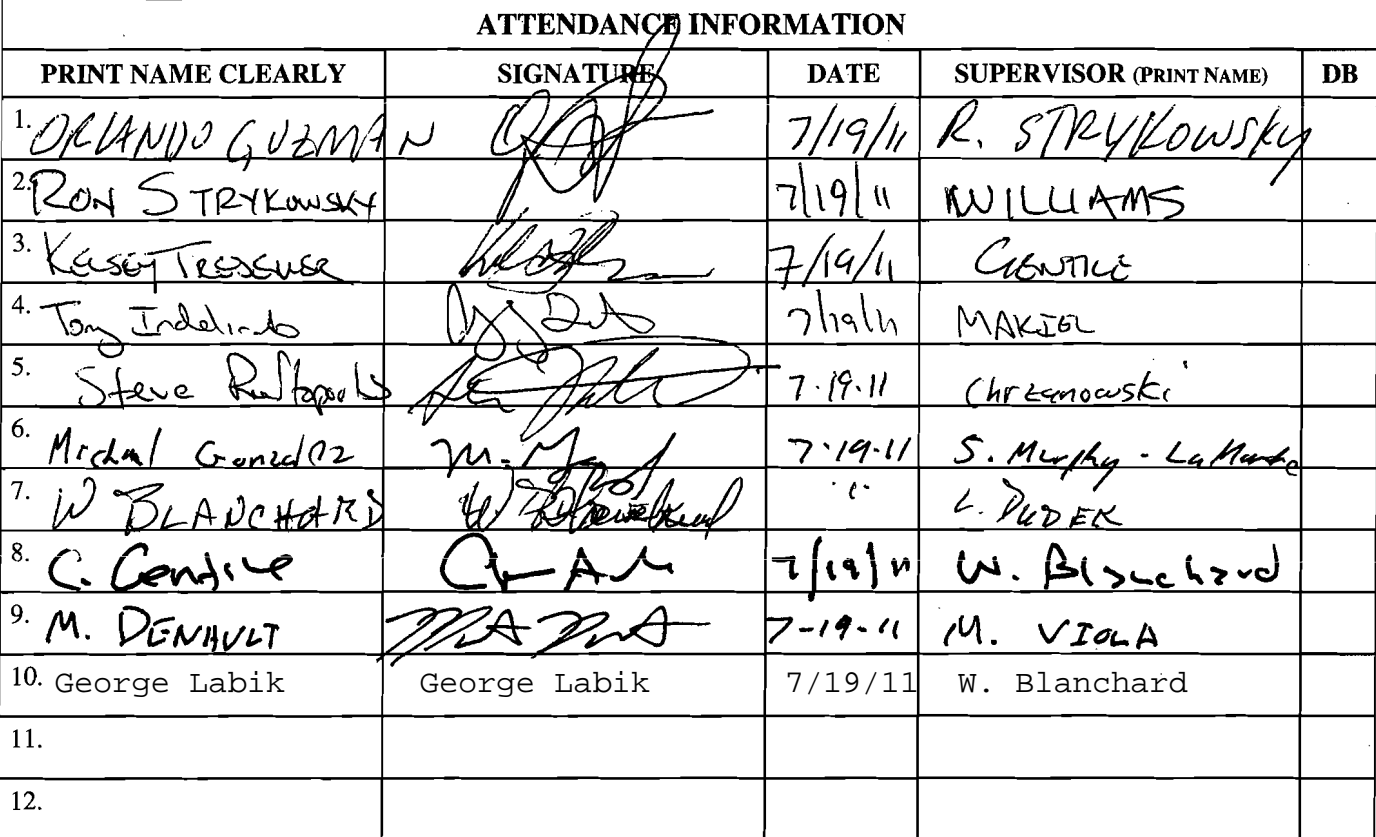 ATTENDANCE INFORMATION
PRINT NAME CLEARLY SIGNATURE DATE SUPERVISOR (PRINT NAME) DB
1. ORLANDO GUZMAN 7/19/11 R. STRYKOWSKY
2. RON STRYKOWSKY 7/19/11 WILLIAMS
3. KELSEY TRESEMER 7/19/11 GENTILE
4. Tony Indelicato 7/19/11 MAKIEL
5. Steve Raftopoulos 7.19.11 Chrzanowski
6. Michael Gonzalez M. 7-19-11 S. Murphy - LaMarche
7. W BLANCHARD W. " L. DUDEK
8. C. Gentile 7/19/11 W. Blanchard
9. M. DENAULT 7-19-11 M. VIOLA
10. George Labik George Labik 7/19/11 W. Blanchard
11.
12.